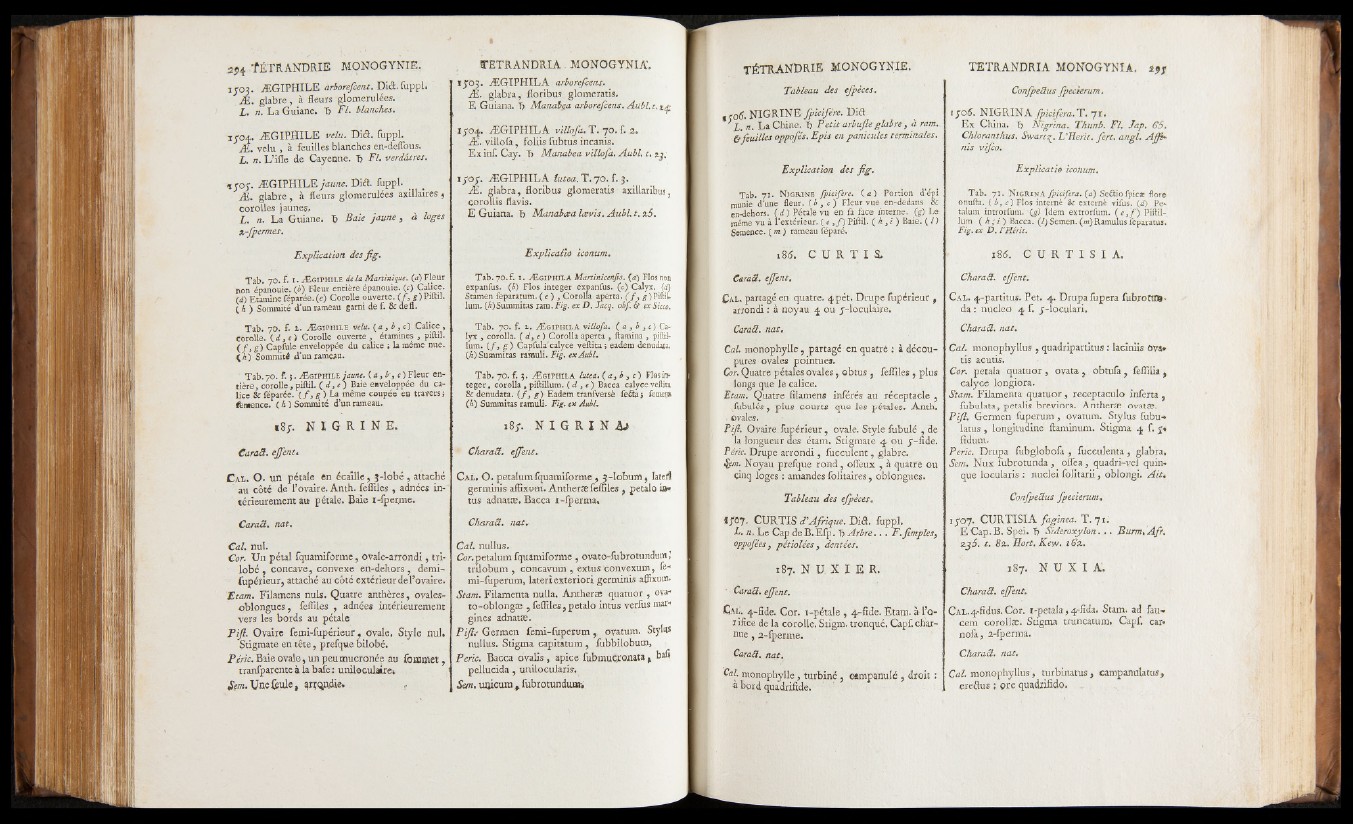 294 TÉTRANDRIE MONOGYNIE.
1503. ÆGIPHILE arborescens. Dict. suppl.
Æ. glabre, à fleurs glomerulées.
L. n. La Guiane. ♄ Fl. blanches.
1504. ÆGIPHILE velu. Dict. suppl.
Æ. velu, à feuilles blanches en-dessous.
L. n. L'isle de Cayenne. ♄ Fl. verdâtres.
1505. ÆGIPHILE jaune. Dict. suppl.
Æ. glabre, à fleurs glomerulées axillaires,
corolles jaunes.
L. n. La Guiane. ♄ Baie jaune, à loges
2-spermes.
Explication des fig.
Tab. 70. f. 1. ÆGIPHILE de la Martinique. (a) Fleur
non épanouie. (b) Fleur entière épanouie. (c) Calice.
(d) Etamine séparée. (e) Corolle ouverte. (f, g) Pistil.
(h) Sommité d'un rameau garni de f. & de fl.
Tab. 70. f. 2. ÆGIPHILE velu. (a, b, c) Calice,
corolle. (d, e) Corolle ouverte, étamines, pistil.
(f, g) Capsule enveloppée du calice; la même nue.
(h) Sommité d'un rameau.
Tab. 70. f. 3. ÆGIPHILE jaune. (a, b, c) Fleur en-
tière, corolle, pistil. (d, e) Baie enveloppée du ca-
lice & séparée. (f, g) La même coupée en travers;
semence. (h) Sommité d'un rameau.
185. NIGRINE.
Caract. essent.
CAL. O. un pétale en écaille, 3-lobé, attaché
au côté de l'ovaire. Anth. sessiles, adnées in-
térieurement au pétale. Baie 1-sperme.
Caract. nat.
Cal. nul.
Cor. Un pétal squamiforme, ovale-arrondi, tri-
lobé, concave, convexe en-dehors, demi-
supérieur, attaché au côté extérieur de l'ovaire.
Etam. Filamens nuls. Quatre anthères, ovales-
oblongues, sessiles, adnées intérieurement
vers les bords au pétale
Pist. Ovaire semi-supérieur, ovale. Style nul.
Stigmate en tête, presque bilobé.
Péric. Baie ovale, un peu mucronée au sommet,
transparente à la base: uniloculaire.
Sem. Une seule, arrondie.
TETRANDRIA MONOGYNIA.
1503. ÆGIPHILA arborescens.
Æ. glabra, floribus glomeratis.
E Guiana. ♄ Manabea arborescens. Aubl. t. 24.
1504. ÆGIPHILA villosa. T. 70. f. 2.
Æ. villosa, foliis subtus incanis.
Ex ins. Cay. ♄ Manabea villosa. Aubl. t. 23.
1505. ÆGIPHILA lutea. T. 70. f. 3.
Æ. glabra, floribus glomeratis axillaribus,
corollis flavis.
E Guiana. ♄ Manabæa lævis. Aubl. t. 25.
Explicatio iconum.
Tab. 70. f. 1. ÆGIPHILA Martinicensis. (a) Flos non
expansus. (b) Flos integer expansus. (c) Calyx. (d)
Stamen separatum. (e), Corolla aperta. (f, g) Pistil-
lum. (h) Summitas ram. Fig. ex D. Jacq. obs. & ex Sicco.
Tab. 70. f. 2. ÆGIPHILA villosa. (a, b, c) Ca-
lyx, corolla. (d, e) Corolla aperta, stamina, pistil-
lum. (f, g) Capsula calyce vestita; eadem denudata.
(h) Summitas ramuli. Fig. ex Aubl.
Tab. 70. f. 3. ÆGIPHILA lutea. (a, b, c) Flos in-
teger, corolla, pistillum. (d, e) Bacca calyce vestita
& denudata. (f, g) Eadem transversè secta; semen.
(h) Summitas ramuli. Fig. ex Aubl.
185. NIGRINA.
Charact. essent.
CAL. O. petalum squamiforme, 3-lobum, lateri
germinis affixum. Antheræ sessiles, petalo in-
tus adnatæ. Bacca 1-sperma.
Charact. nat.
Cal. nullus.
Cor. petalum squamiforme, ovato-subrotundum,
trilobum, concavum, extus convexum, se-
mi-superum, lateri exteriori germinis affixum.
Stam. Filamenta nulla. Antheræ quatuor, ova-
to-oblongæ, sessiles, petalo intus versus mar-
gines adnatæ.
Pist. Germen semi-superum, ovatum. Stylus
nullus. Stigma capitatum, subbilobum.
Peric. Bacca ovalis, apice submucronata, basi
pellucida, unilocularis.
Sem. unicum, subrotundum.
TÉTRANDRIE MONOGYNIE.
Tableau des espèces.
1506. NIGRINE spicifère. Dict
L. n. La Chine. ♄ Petit arbuste glabre, à ram.
& feuilles opposés. Epis en panicules terminales.
Explication des fig.
Tab. 71. NIGRINE spicifère. (a) Portion d'épi
munie d'une fleur. (b, c) Fleur vue en-dedans &
en-dehors. (d) Pétale vu en sa face interne. (g) Le
même vu à l'extérieur. (e, f) Pistil. (h, i) Baie. (l)
Semence. (m) rameau séparé.
186. CURTIS.
Caract. essent.
CAL. partagé en quatre. 4 pét. Drupe supérieur,
arrondi: à noyau 4 ou 5-loculaire.
Caract. nat.
Cal. monophylle, partagé en quatre: à décou-
pures ovales pointues.
Cor. Quatre pétales ovales, obtus, sessiles, plus
longs que le calice.
Etam. Quatre filamens insérés au réceptacle,
subulés, plus courts que les pétales. Anth.
ovales.
Pist. Ovaire supérieur, ovale. Style subulé, de
la longueur des étam. Stigmate 4 ou 5-fide.
Péric. Drupe arrondi, succulent, glabre.
Sem. Noyau presque rond, osseux, à quatre ou
cinq loges: amandes solitaires, oblongues.
Tableau des espèces.
1507. CURTIS d'Afrique. Dict. suppl.
L. n. Le Cap de B. Esp. ♄ Arbre... F. simples,
opposées, pétiolées, dentées.
187. NUXIER.
Caract. essent.
CAL. 4-fide. Cor. 1-pétale, 4-fide. Etam. à l'o-
rifice de la corolle. Stigm. tronqué. Caps. char-
nue, 2-sperme.
Caract. nat.
Cal. monophylle, turbiné, campanulé, droit:
à bord quadrifide.
TETRANDRIA MONOGYNIA. 295
Conspectus specierum.
1506. NIGRINA spicifera. T. 71.
Ex China. ♄ Nigrina. Thunb. Fl. Jap. 65.
Chloranthus. Swartz, L'Herit. sert. angl. Affi-
nis visco.
Explicatio iconum.
Tab. 71. NIGRINA spicifera. (a) Sectio spicæ flore
onusta. (b, c) Flos internè & externè visus. (d) Pe-
talum introrsum. (g) Idem extrorsum. (e, f) Pistil-
lum. (h, i) Bacca. (l) Semen. (m) Ramulus separatus.
Fig. ex D. l'Hérit.
186. CURTISIA.
Charact. essent.
CAL. 4-partitus. Pet. 4. Drupa supera subrotun-
da: nucleo 4 s. 5-loculari.
Charact. nat.
Cal. monophyllus, quadripartitus: laciniis ova-
tis acutis.
Cor. petala quatuor, ovata, obtusa, sessilia,
calyce longiora.
Stam. Filamenta quatuor, receptaculo inserta,
subulata, petalis breviora. Antheræ ovatæ.
Pist. Germen superum, ovatum. Stylus subu-
latus, longitudine staminum. Stigma 4 s. 5-
fidum.
Peric. Drupa subglobosa, succulenta, glabra.
Sem. Nux subrotunda, ossea, quadri-vel quin-
que locularis: nuclei solitarii, oblongi. Ait.
Conspectus specierum.
1507. CURTISIA faginea. T. 71.
E Cap. B. Spei. ♄ Sideroxylon... Burm. Afr.
235. t. 82. Hort. Kew. 162.
187. NUXIA.
Charact. essent.
CAL. 4-fidus. Cor. 1-petala, 4-fida. Stam. ad fau-
cem corollæ. Stigma truncatum. Caps. car-
nosa, 2-sperma.
Charact. nat.
Cal. monophyllus, turbinatus, campanulatus,
erectus: ore quadrifido.